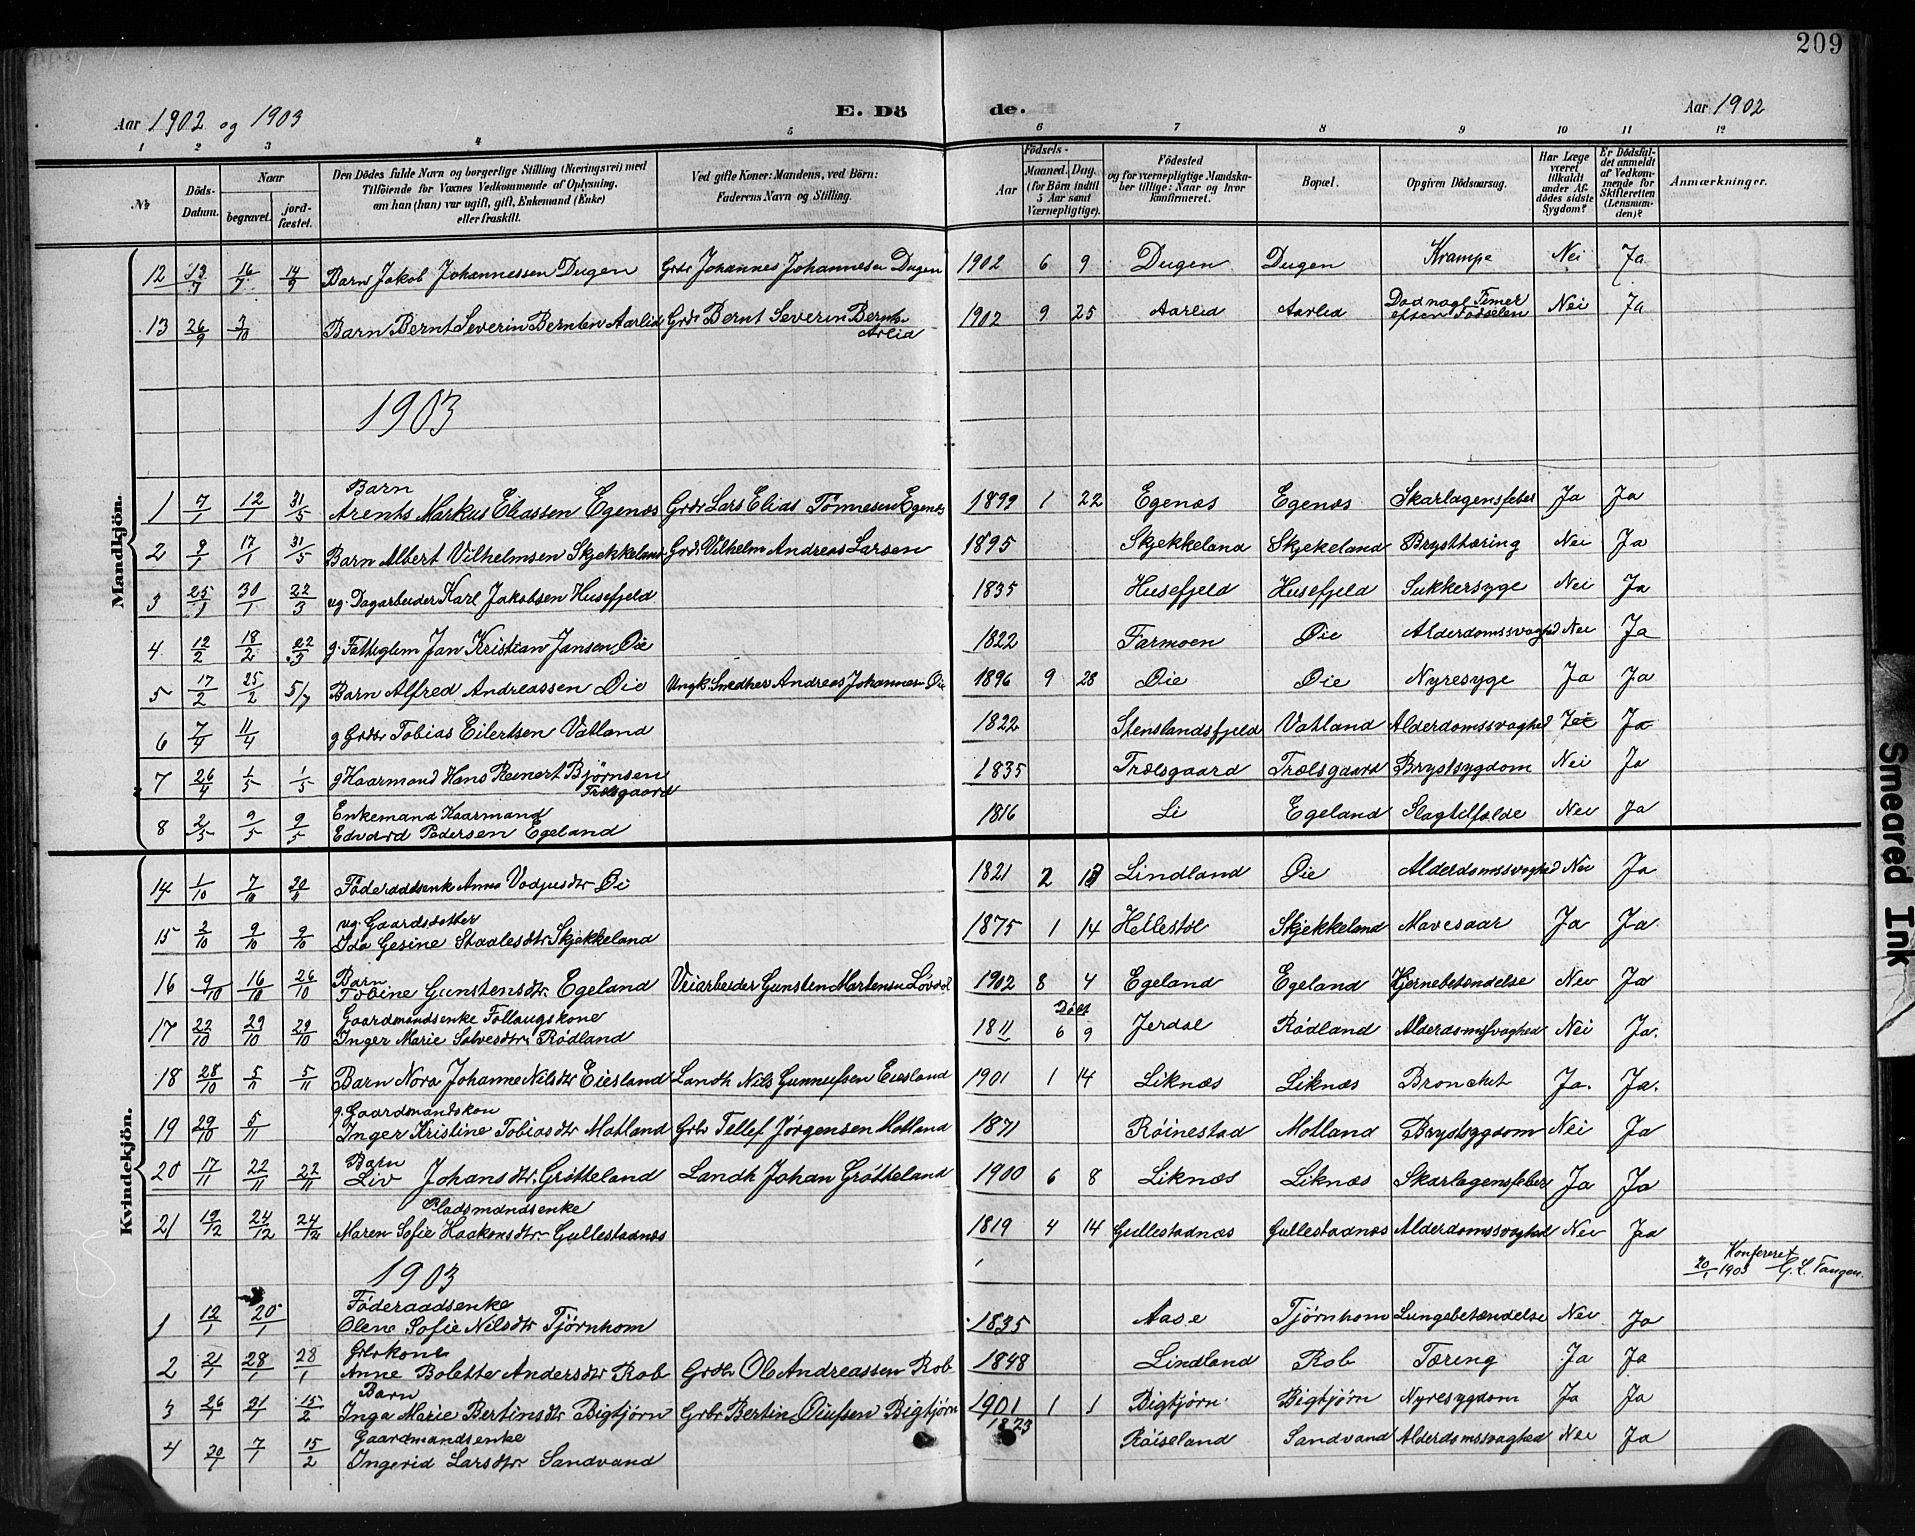 209
Aar 1902 og 1903 E. Dö de. Aar 1902
1 2 3 4 5 6 7 8 9 10 11 12
№ Döds-Datum. Naar begravet. jord-fæstet. Den Dödes fulde Navn og borgerlige Stilling (Næringsvei) med Tilföiende for Voxnes Vedkommende af Oplysning, om han (hun) var ugift, gift, Enkemand (Enke) eller fraskilt. Ved gifte Koner: Mandens, ved Börn: Faderens Navn og Stilling. Födsels- Aar Maaned. Dag. (for Börn indtil 5 Aar samt Værnepligtige). Födested og for værnepligtige Mandska-ber tillige: Naar og hvor konfirmeret. Bopæl. Opgiven Dödsaarsag. Har Læge været tilkaldt under Af-dödes sidste Sygdom? Er Dödsfal-det anmeldt af Vedkom-mende for Skifteretten (Lensman-den)? Anmærkninger.
Mandkjön.
12 13/7 16/7 14/9 Barn Jakob Johannessen Dugen Grdr Johannes Johannesen Dugen 1902 6 9 Dugen Dugen Krampe Nei Ja
13 26/9 3/10 Barn Bernt Severin Berntsen Aarlid Grdr Bernt Severin Bernts. Arlid 1902 9 25 Aarlid Aarlid Død nogl Timer efter Fødselen Nei Ja
1903
1 7/1 12/1 31/5 Barn Arents Markus Eliassen Egenæs Grdr Lars Elias Tønnesen Egenæs 1899 1 22 Egenæs Egenæs Skarlagensfeber Ja Ja
2 9/1 17/1 31/5 Barn Albert Vilhelmsen Skjekkeland Grdr Vilhelm Andreas Larsen 1895 Skjekkeland Skjekeland Brysttæring Nei Ja
3 25/1 30/1 22/3 ug. Dagarbeider Karl Jakobsen Husefjeld 1835 Husefjeld Husefjeld Sukkersyge Nei Ja
4 12/2 18/2 22/3 g. Fattiglem Jan Kristian Jansen Øie 1822 Farmoen Øie Alderdomssvaghed Nei Ja
5 17/2 25/2 5/7 Barn Alfred Andreassen Øie Ungk. Smedhev Andreas Johannes Øie 1896 9 28 Øie Øie Nyresyge Ja Ja
6 7/4 11/4 g Grdr Tobias Eilertsen Vatland 1822 Stenslandsfjeld Vatland Alderdomssvaghed Ja
7 26/4 1/5 1/5 g Kaarmand Hans Reinert Bjørnsen Trælsgaard 1835 Trælsgaard Trælsgaard Brystsygdom Nei Ja
8 2/5 9/5 9/5 Enkemand Kaarmand Edvard Pedersen Egeland 1816 Li Egeland Slagtilfælde Nei Ja
Kvindekjön.
14 1/10 7/10 Føderaadsenk Anna Øi 1821 2 Lindland Øie Alderdomssvaghed Nei Ja
15 2/10 9/10 9/10 ug. Gaardsdatter Ida Gesine Staalesdtr Skjekkeland 1875 1 14 Hellestøl Skjekkeland Mavesaar Ja Ja
16 9/10 16/10 26/10 Barn Tobine Gunstensdtr. Egeland Veiarbeider Gunsten Martensen Løvdal 1902 8 4 Egeland Egeland Hjernebetændelse Nei Ja
17 22/10 29/10 29/10 Gaardmandsenke Follaugskone Inger Marie Salvesdtr. Rødland 1811 Døbt 6 9 Jerdal Rødland Alderdomssvaghed Nei Ja.
18 28/10 5/11 5/11 Barn Nora Johanne Nilsdtr Eiesland Landh Nils Gunnufsen Eiesland 1901 1 14 Liknæs Liknæs Bronchit Ja. Ja.
19 29/10 5/11 g. Gaardmandskon Inger Kristine Tobiasdtr Motland Grbr Tellef Jørgensen Motland 1871 Røinestad Motland Brystsygdom Nei Ja
20 17/11 22/11 22/11 Barn Liv Johansdtr. Grøtteland Landh Johan Grøtteland 1900 6 8 Liknæs Liknæs Skarlagensfeber Ja Ja
21 19/12 24/12 24/12 Pladsmandsenke Maren Sofie Haakonsdtr. Gullestadnæs 1819 4 14 Gullestadnæs Gullestadnæs Alderdomssvaghed Nei Ja
Konfereret 20/1 1903 G. L. Tangen.
1903
1 12/1 20/1 Føderaadsenke Olene Sofie Nilsdtr Tjørnhom 1835 Aase Tjørnhom Lungebetændelse Nei Ja
2 21/1 28/1 28/1 Grbrkone Anne Bolette Andersdtr Rob Grdbr Ole Andreassen Rob 1848 Lindland Rob Tæring Ja Ja
3 26/1 21/1 15/2 Barn Inga Marie Bertinsdtr Bigtjørn Grbr Bertin Olufsen Bigtjørn 1901 1 1 Bigtjørn Bigtjørn Nyresygdom Ja Ja
4 30/1 7 15/2 Gaardmandsenke Ingerid Larsdtr Sandvand 1823 Røiseland Sandvand Alderdomssvaghed Nei Ja
Smeared Ink